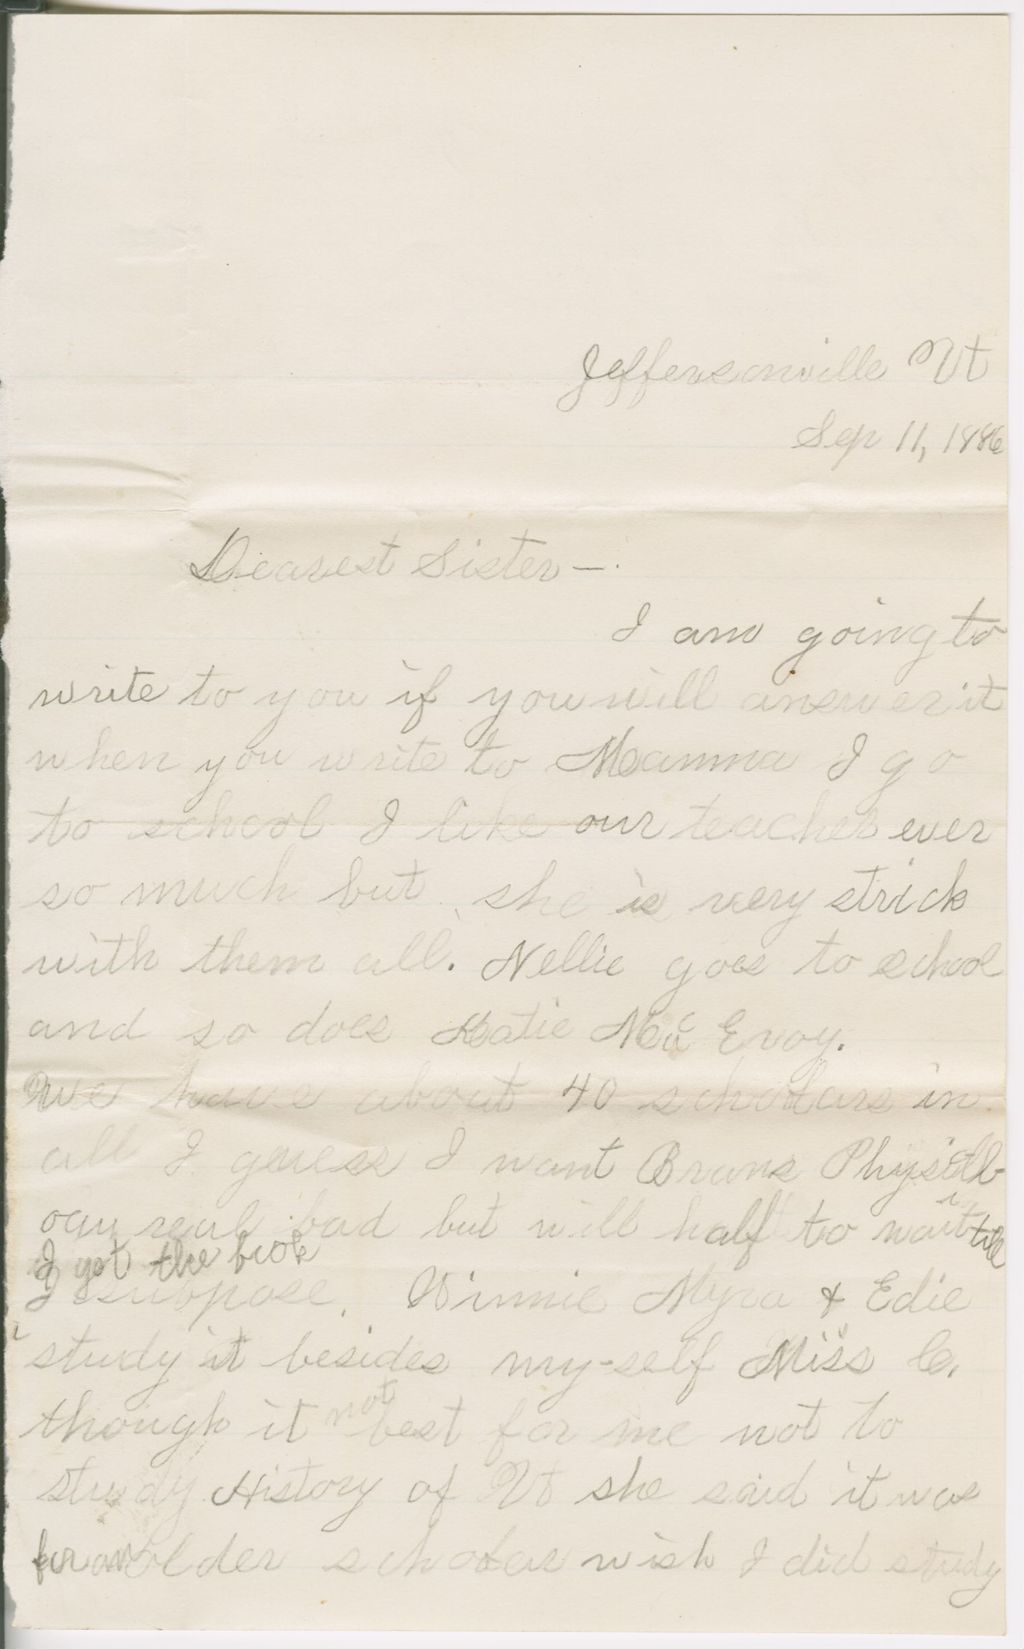 Jeffersonville Vt
Sep 11, 1886
Dearest Sister —.
I am going to
write to you if you will answer it
when you write to Mamma I go
to school I like our teacher ever
so much but she is very strick
with them all. Nellie goes to school
and so does Katie Mc Evoy.
We have about 40 scholars in
all I guess I want Browns Physill
ogy real bad but will half to wait till
I get the book
I suppose. Winnie Myra & Edie
study it besides my-self Miss C.
though it not best for me not to
study History of Vt she said it was
for an older scholar wish I did study